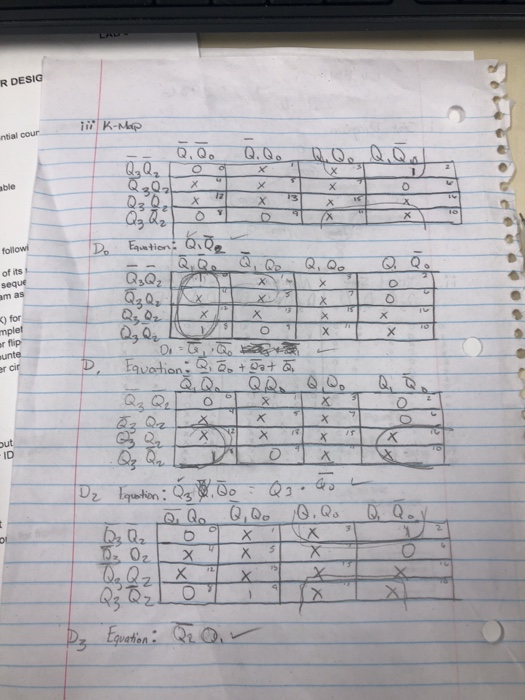 R DESIG
ntial cour
able
followi
of its
seque
am as
K) for
mplet
er flip
ounte
er cir
out
ID
iii K-Map
Q̄₁Q̄₀ Q̄₁Q₀ Q₁Q₀ Q₁Q̄₀
Q̄₃Q̄₂ 0 0 X 1 X 3 1 2
Q̄₃Q₂ X 4 X X 7 0
Q₃Q₂ X 12 X 13 X 15 X
Q₃Q̄₂ 0 8 0 9 X X 10
D₀ Equation: Q₁Q̄₂ ✓
Q̄₁Q̄₀ Q̄₁Q₀ Q₁Q₀ Q₁ Q̄₀
Q̄₃Q̄₂ 1 X X 0
Q̄₃Q₂ X X 5 X 7 0
Q₃Q₂ X X X X
Q₃Q̄₂ 1 0 X X 10
D₁ = Q̄₁.Q̄₀ ✓
D₁ Equation: Q̄₁ Q̄₀
Q̄₁Q̄₀ Q̄₁Q₀ Q₁Q₀ Q₁Q̄₀
Q̄₃Q̄₂ 0 0 X 1 X 0 2
Q̄₃Q₂ X X X 7 0
Q₃Q₂ X 12 X 13 X 15 X
Q₃Q̄₂ 1 0 X X 10
D₂ Equation: Q₃ Q̄₀ = Q₃ . Q̄₀ ✓
Q̄₁Q̄₀ Q̄₁Q₀ Q₁Q₀ Q₁Q̄₀
Q̄₃Q̄₂ 0 0 X 1 X 3 1 2
Q̄₃Q₂ X 4 X 5 X 0
Q₃Q₂ X 12 X X X
Q₃Q̄₂ 0 8 1 9 X X
D₃ Equation: Q̄₂ Q₁ ✓